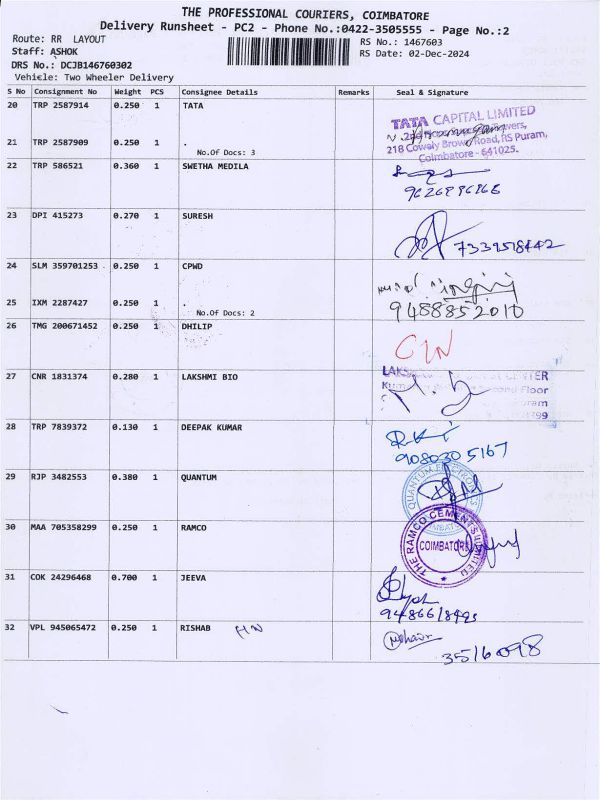 THE PROFESSIONAL COURIERS, COIMBATORE
Delivery Runsheet - PC2 - Phone No.:0422-3505555 - Page No.:2
Route: RR LAYOUT
RS No.: 1467603
Staff: ASHOK
RS Date: 02-Dec-2024
DRS No.: DCJB146760302
Vehicle: Two Wheeler Delivery
S No Consignment No Weight PCS Consignee Details Remarks Seal & Signature
20 TRP 2587914 0.250 1 TATA
TATA CAPITAL LIMITED
21 TRP 2587909 0.250 1 .
218 Cowely Brown Road, RS Puram,
No.Of Docs: 3
Coimbatore - 641025.
22 TRP 586521 0.360 1 SWETHA MEDILA
23 DPI 415273 0.270 1 SURESH
24 SLM 359701253 0.250 1 CPWD
25 IXM 2287427 0.250 1 .
9488852010
No.Of Docs: 2
26 TMG 200671452 0.250 1 DHILIP
27 CNR 1831374 0.280 1 LAKSHMI BIO
CENTER
Second Floor
28 TRP 7839372 0.130 1 DEEPAK KUMAR
9080305167
29 RJP 3482553 0.380 1 QUANTUM
QUANTUM
30 MAA 705358299 0.250 1 RAMCO
THE RAMCO CEMENTS LIMITED
COIMBATORE
31 COK 24296468 0.700 1 JEEVA
32 VPL 945065472 0.250 1 RISHAB HN
3516098